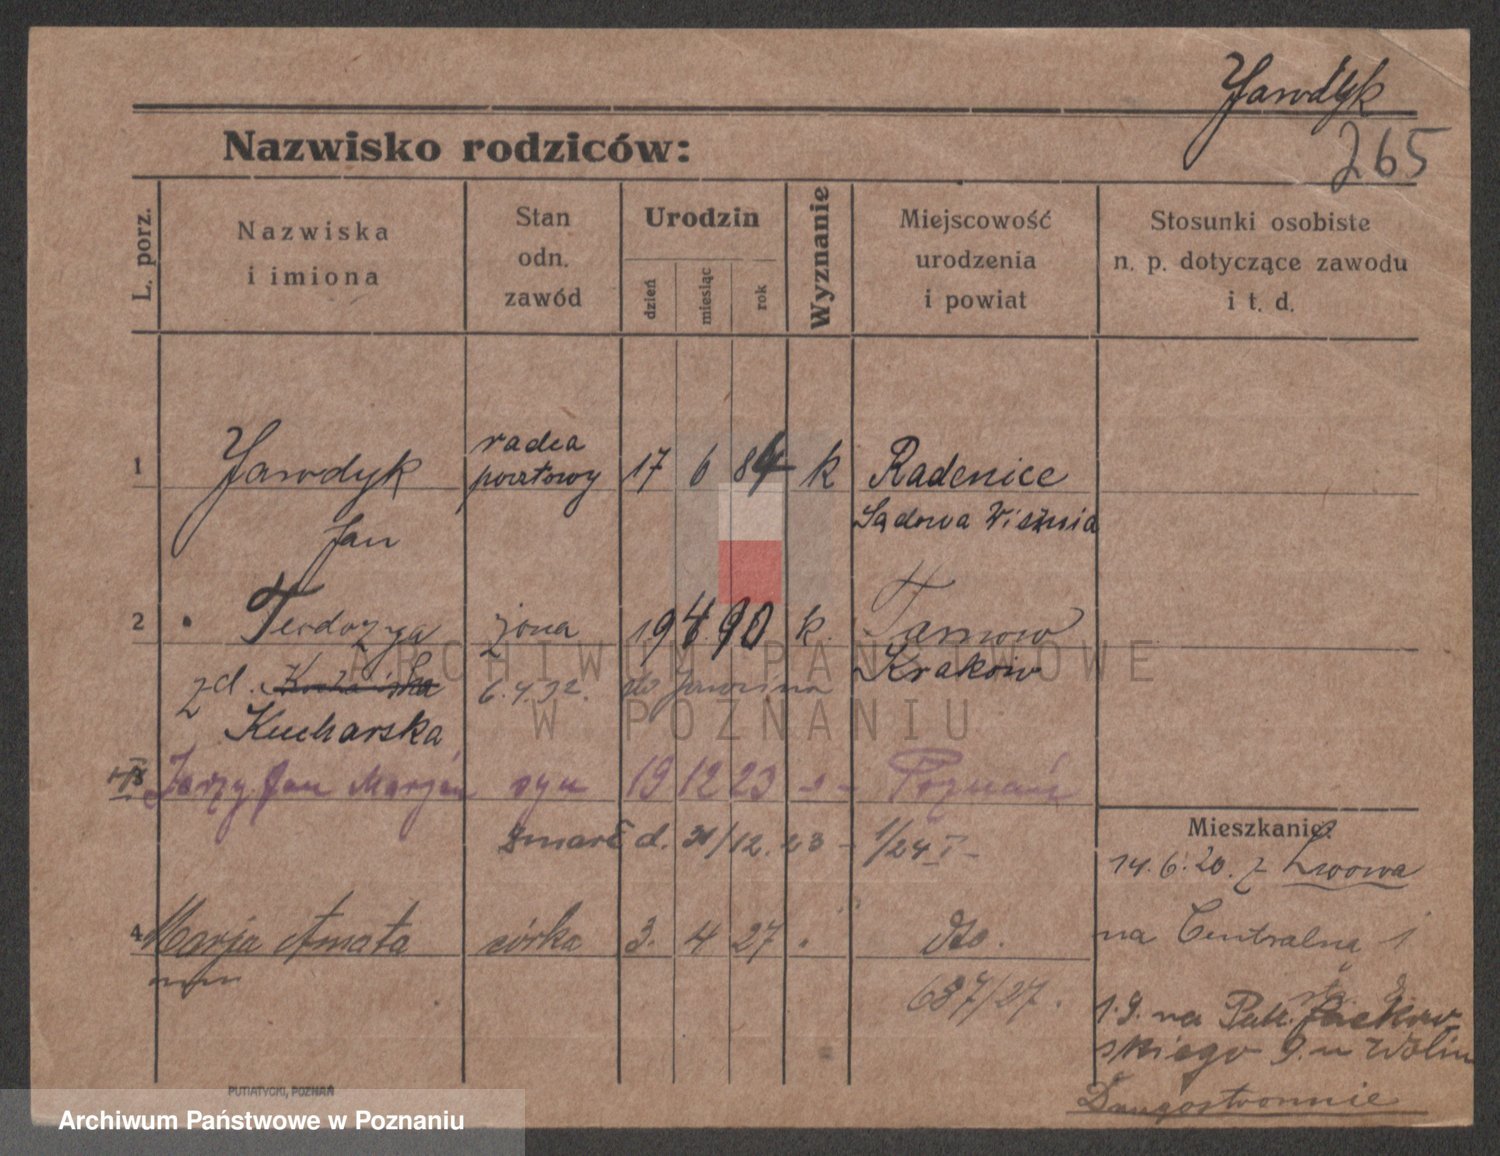 Jawdyk
265
Nazwisko rodziców:
L. porz.
Nazwiska
i imiona
Stan
odn.
zawód
Urodzin
dzień
miesiąc
rok
Wyznanie
Miejscowość
urodzenia
i powiat
Stosunki osobiste
n. p. dotyczące zawodu
i t. d.
1 Jawdyk radca pocztowy 17 6 84 k Radenice
Jan Sądowa Wisznia
2 Teodozya żona 19 4. 90 k. Tarnow
zd. Kucharska 6. 4. 32. do Kraków
Jerzy Jan Marjan syn 19 12 23 Poznań
zmarł d. 31/12. 23 - 1/24 I -
4 Marja Amata córka 3. 4 27 dto.
687/27.
Mieszkanie?
14. 6. 20. z Lwowa
na Centralną 1
1.9. na Patr. Jackow
skiego 9. u Wolin
Dwustronnie
PUTIATYCKI, POZNAŃ
ARCHIWUM PAŃSTWOWE
W POZNANIU
Archiwum Państwowe w Poznaniu